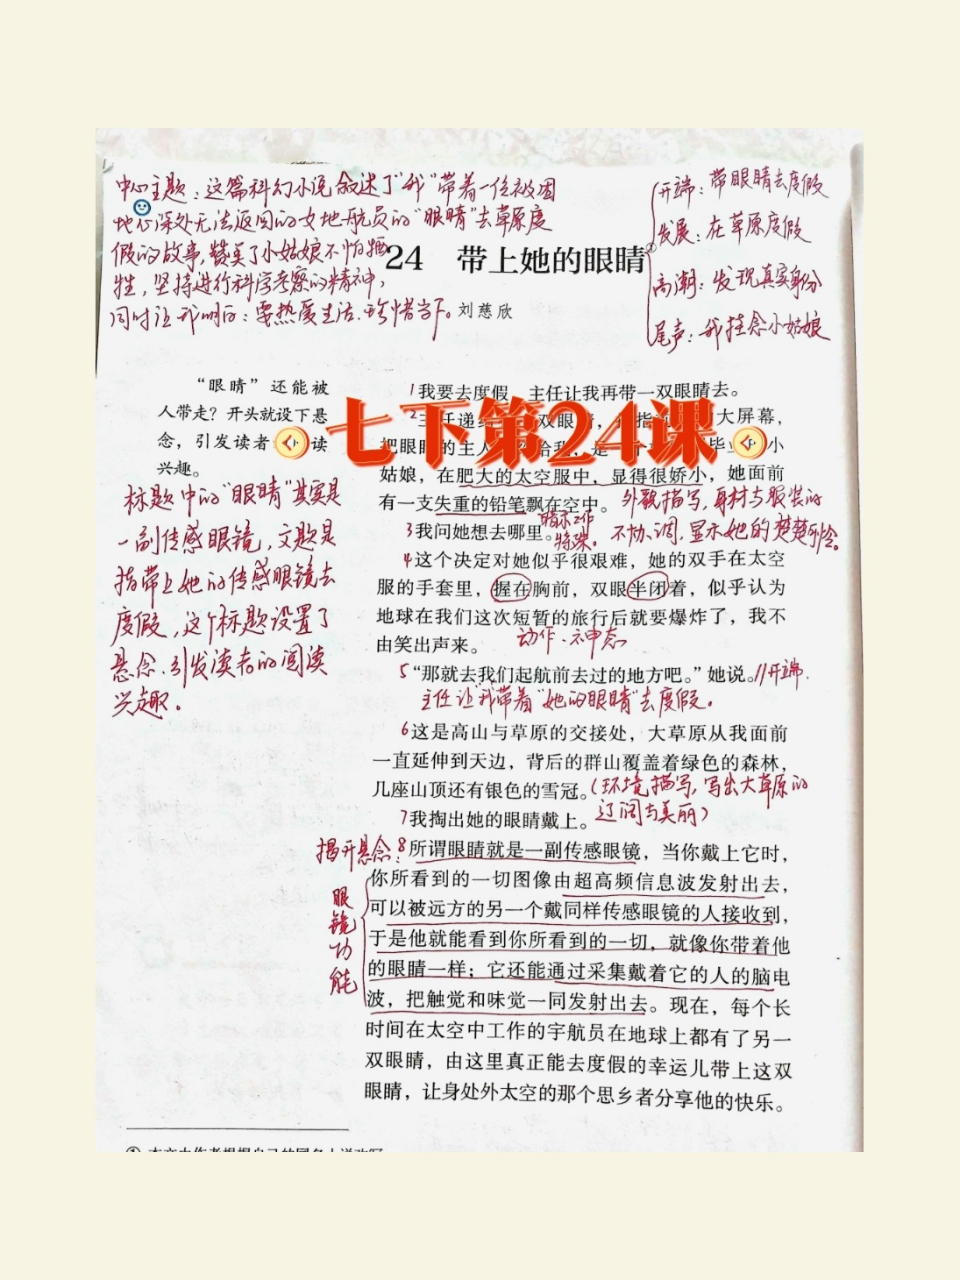 中心主题：这篇科幻小说叙述了"我"带着一位被困
地心深处无法返回的女地航员的"眼睛"去草原度
假的故事，赞美了小姑娘不怕牺
牲，坚持进行科学考察的精神，
同时让我明白：要热爱生活、珍惜当下。
24 带上她的眼睛
刘慈欣
开端：带眼睛去度假
发展：在草原度假
高潮：发现真实身份
尾声：我挂念小姑娘
"眼睛"还能被
人带走？开头就设下悬
念，引发读者 读
兴趣。
标题中的"眼睛"其实是
一副传感眼镜，文题是
指带上她的传感眼镜去
度假，这个标题设置了
悬念，引发读者的阅读
兴趣。
七下第24课
1我要去度假，主任让我再带一双眼睛去。
2主任递给 双眼睛， 指 大屏幕，
把眼睛的主人 给我，是一个 毕业 小
姑娘，在肥大的太空服中，显得很娇小，她面前
有一支失重的铅笔飘在空中。
外貌描写，身材与服装的
不协调，显示她的楚楚可怜。
暗示工作
特殊。
3我问她想去哪里。
4这个决定对她似乎很艰难，她的双手在太空
服的手套里，握在胸前，双眼半闭着，似乎认为
地球在我们这次短暂的旅行后就要爆炸了，我不
由笑出声来。
动作、神态
5"那就去我们起航前去过的地方吧。"她说。//开端.
主任让"我"带着"她的眼睛"去度假。
6这是高山与草原的交接处，大草原从我面前
一直延伸到天边，背后的群山覆盖着绿色的森林，
几座山顶还有银色的雪冠。
（环境描写，写出大草原的
辽阔与美丽）
7我掏出她的眼睛戴上。
揭开悬念：
眼镜功能
8所谓眼睛就是一副传感眼镜，当你戴上它时，
你所看到的一切图像由超高频信息波发射出去，
可以被远方的另一个戴同样传感眼镜的人接收到，
于是他就能看到你所看到的一切，就像你带着他
的眼睛一样；它还能通过采集戴着它的人的脑电
波，把触觉和味觉一同发射出去。现在，每个长
时间在太空中工作的宇航员在地球上都有了另一
双眼睛，由这里真正能去度假的幸运儿带上这双
眼睛，让身处外太空的那个思乡者分享他的快乐。